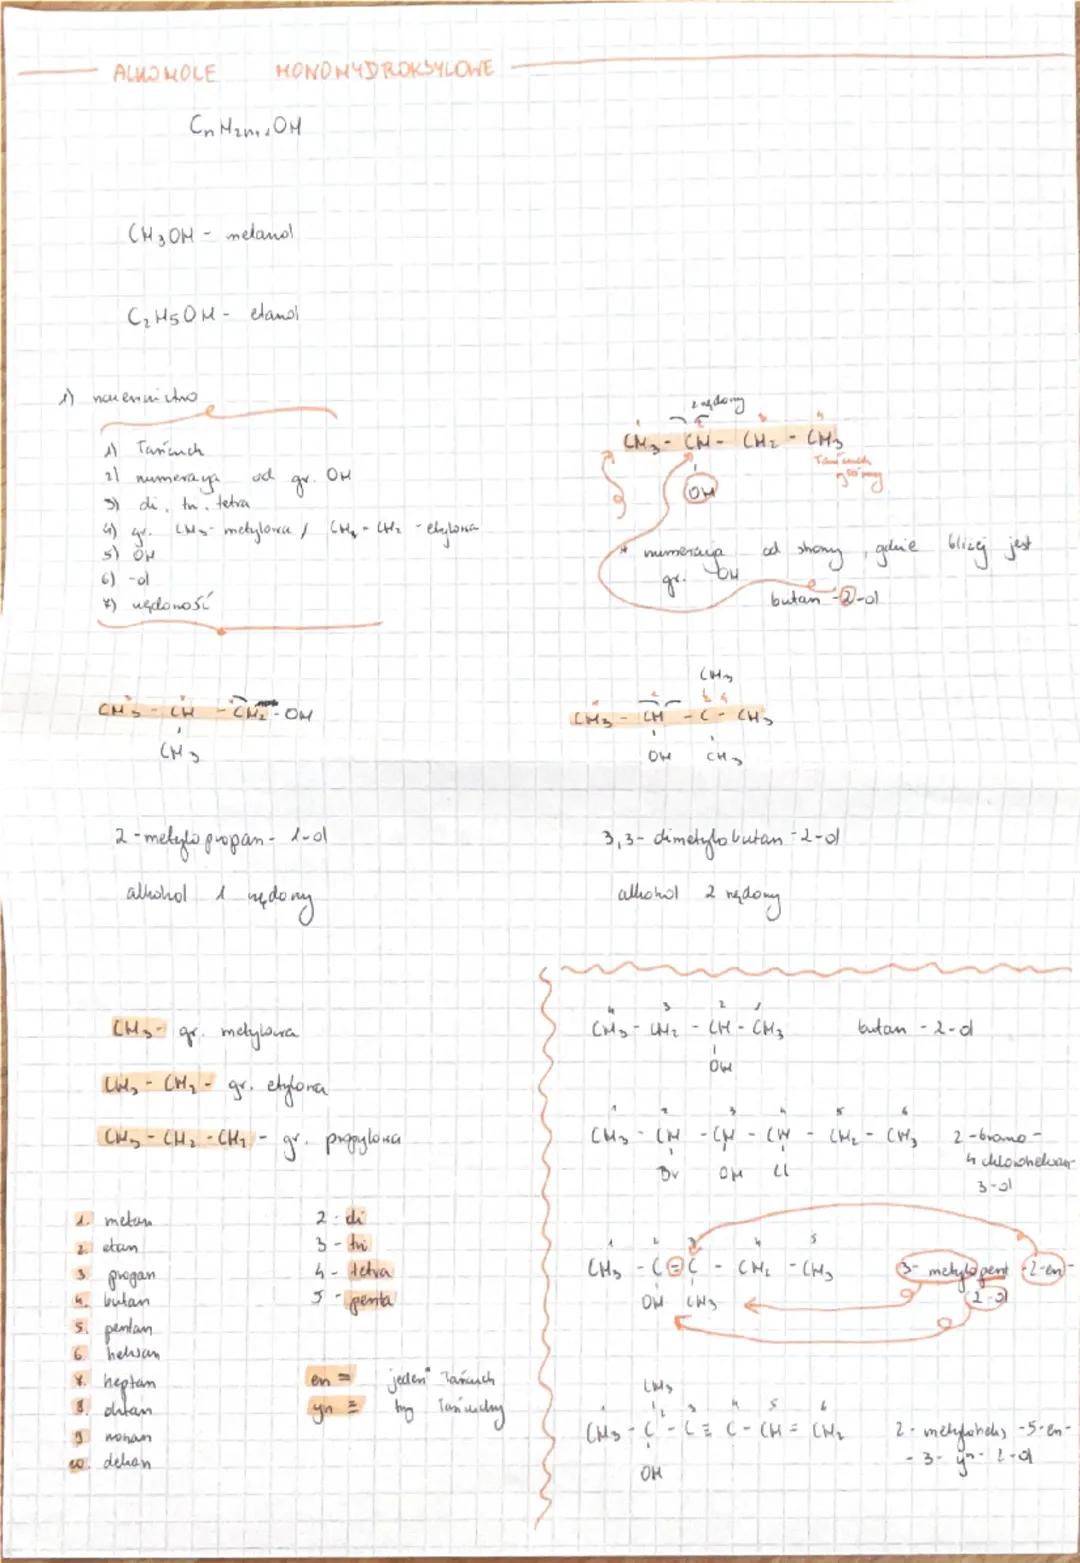 ALKOHOLE MONOHYDROKSYLOWE
CnH2n+1OH
CH3OH - metanol
C2H5OH - etanol
1) nazewnictwo
1) Łańcuch
2) numeracja od gr. OH
3) di, tri, tetra
4) gr. CH3- metylowa / CH3-CH2 - etylowa
5) OH
6) -ol
7) rzędowość
2 rzędowy
1 2 3 4
CH3 - CH - CH2 - CH3
OH
Łańcuch główny
* numeracja od strony, gdzie bliżej jest
gr. OH
butan -2-ol
3 2 1
CH3 - CH - CH2 - OH
CH3
2-metylopropan-1-ol
alkohol 1 rzędowy
CH3
1 2 3 4
CH3 - CH - C - CH3
OH CH3
3,3-dimetylobutan-2-ol
alkohol 2 rzędowy
CH3- gr. metylowa
CH3 - CH2 - gr. etylowa
CH3 - CH2 - CH2 - gr. propylowa
1. metan
2. etan
3 propan
4. butan
5. pentan
6. heksan
7. heptan
8. oktan
9 nonan
10. dekan
2 - di
3 - tri
4 - tetra
5 - penta
en = jeden Łańcuch
yn ≡ trzy Łańcuchy
4 3 2 1
CH3 - CH2 - CH - CH3 butan -2-ol
OH
1 2 3 4 5 6
CH3 - CH - CH - CH - CH2 - CH3 2-bromo-
Br OH Cl 4 chloroheksan-
3-ol
1 2 3 4 5
CH3 - C = C - CH2 - CH3 3-metylopent-2-en-
OH CH3 2-ol
CH3
1 2 3 4 5 6
CH3 - C - C ≡ C - CH = CH2 2-metyloheks-5-en-
OH -3-yn-2-ol